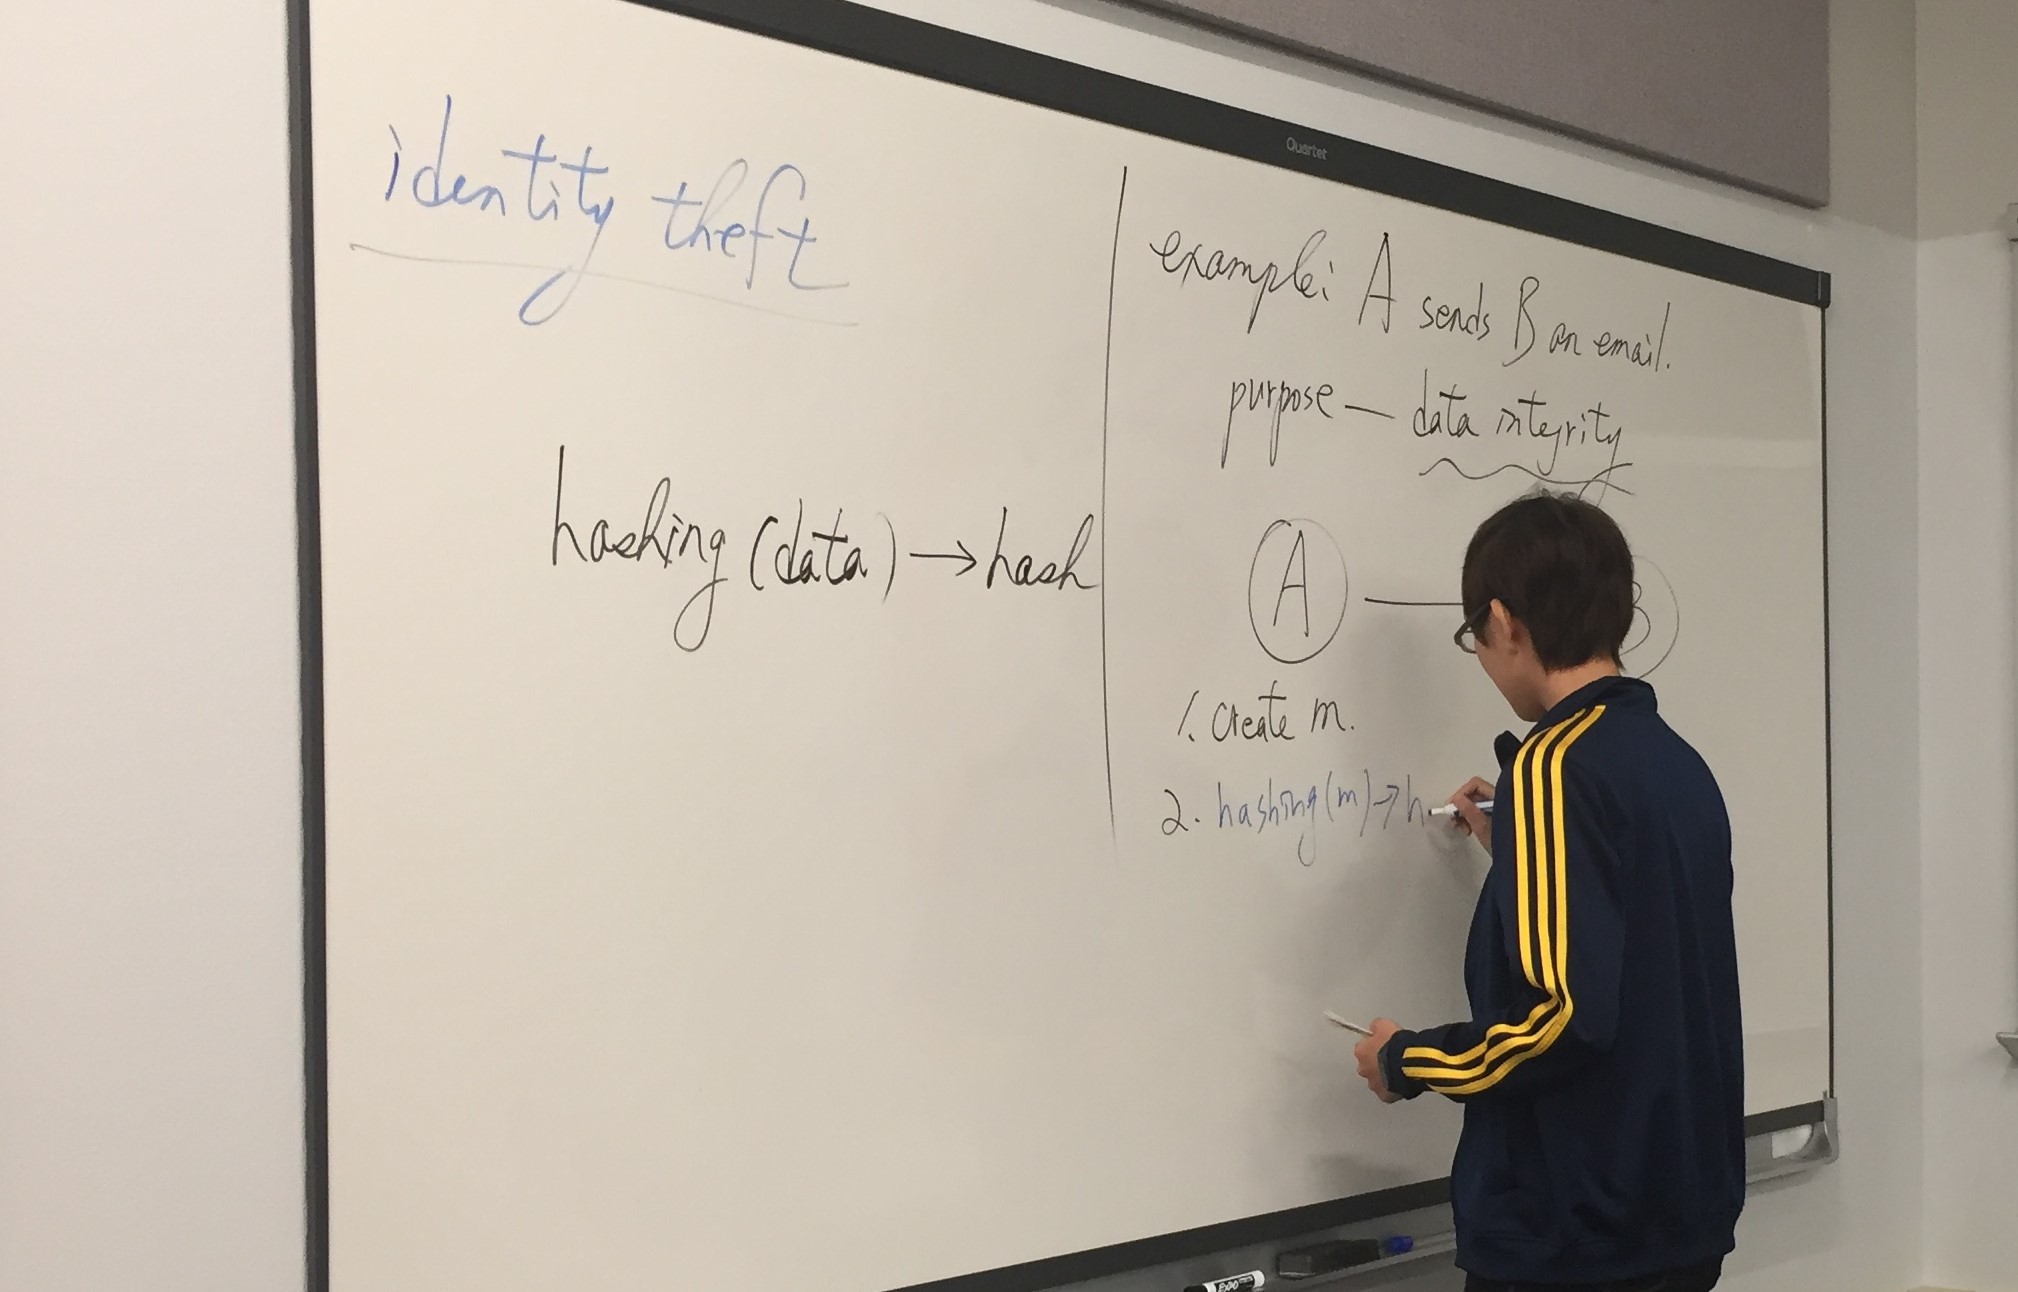 Quartet
identity theft
hashing (data) → hash
example: A sends B an email.
purpose — data integrity
A
B
1. create m.
2. hashing(m) → h
EXPO